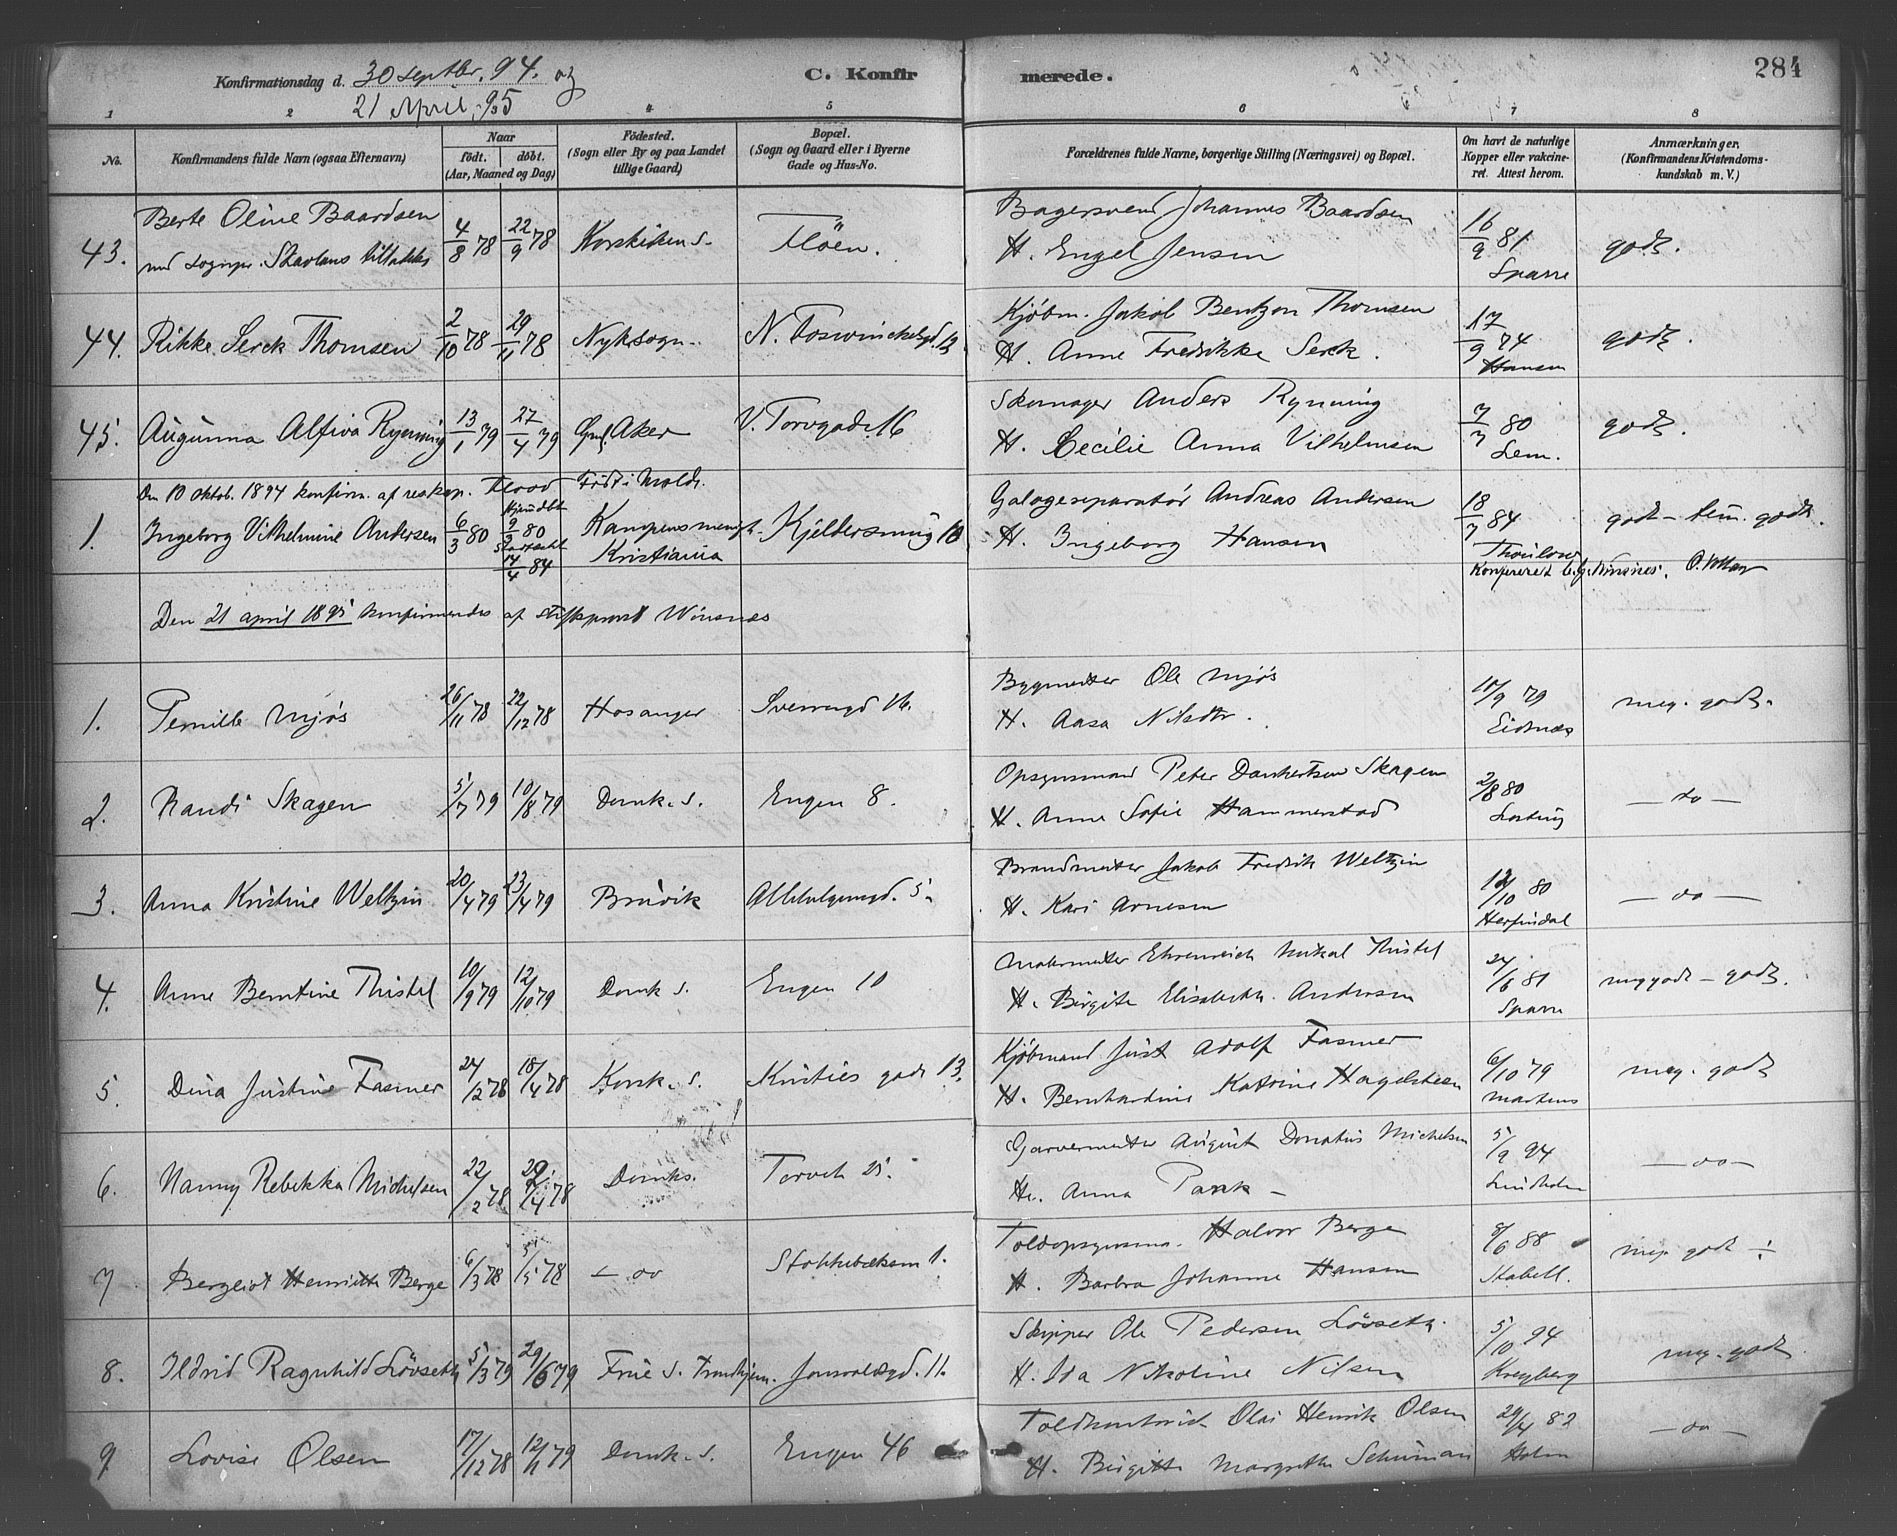 Konfirmationsdag d. 30 septbr. 94. og
21 April. 95
C. Konfirmerede.
284
1 2 4 5 6 7 8
No.
Konfirmandens fulde Navn (ogsaa Efternavn)
Naar
født. døbt.
(Aar, Maaned og Dag)
Fødested.
(Sogn eller By og paa Landet
tillige Gaard)
Bopæl.
(Sogn og Gaard eller i Byerne
Gade og Hus-No.
Forældrenes fulde Navne, borgerlige Stilling (Næringsvei) og Bopæl.
Om havt de naturlige
Kopper eller vakcine-
ret. Attest herom.
Anmærkninger.
(Konfirmandens Kristendoms-
kundskab m. V.)
43. Berte Oline Baardsen
med sognepr. Skavlans tilladelse
4/8 78 22/9 78 Korskirken s. Fløen.
Bagersvend Johannes Baardsen
H. Engel Jensen
16/9 81
Sparre
godt.
44. Rikke Serck Thomsen 2/10 78 29/11 78 Nyk.sogn. N. Foswinckelsgd. 12
Kjøbm. Jakob Bentzon Thomsen
H. Anne Fredrikke Serck.
17/9 74
Hansen
godt.
45. Augunna Alfiva Rynning 13/1 79 27/4 79 Aker V. Torvgade 16
Skomager Anders Rynning
H. Cecilie Anna Vilhelmsen
7/7 80
Lem.
godt.
Den 10 oktob. 1894 konfirm. af reskap. Flood
1. Ingeborg Vilhelmine Andersen 6/3 80
Hjemdbt
9/3 80
Stadfæstet
14/4 84
Født i Molde.
Kampens menigh.
Kristiania
Kjeldersmug 10
Galogeseparatør Andreas Andersen
H. Ingeborg Hansen
18/7 84
Thoulow
godt – tem. godt.
Den 21 april 1895 konfirmeredes af stiftsprovst Winsnes
1. Pernille Mjøs 26/11 78 22/12 78 Hosanger Sverresgd 16.
Bygmester Ole Mjøs
H. Aasa Nilsdtr.
10/9 79
Eidsnæs
meg. godt.
2. Nandi Skagen 5/7 79 10/8 79 Domk. s. Engen 8.
Opsynsmand Peter Dankertsen Skagen
H. Anne Sofie Hammerstad
2/8 80
Losting
— do —
3. Anna Kristine Weltzin 20/4 79 23/4 79 Bruvik Allehelgensgd. 5.
Brandmester Jakob Fredrik Weltzin
H. Kari Arnesen
12/10 80
Herfindal
— do —
4. Anne Berntine Thistel 10/9 79 12/10 79 Domk s. Engen 10
Malermester Ehrenreich Mikal Thistel
H. Birgite Elisabeth. Andersen
24/6 81
Sparre
meg godt – godt.
5. Dina Justine Fasmer 24/2 78 18/4 78 Korsk. s. Kristies gade 13.
Kjøbmand Just Adolf Fasmer
H. Bernhardine Katrine Hagelsteen
6/10 79
Martens
meg. godt
6. Nanny Rebekka Michelsen 22/2 78 22/4 78 Domks. Torvet 25.
Garvermester August Donatus Michelsen
H. Anna Pank –
5/9 94
Lindholm
— do —
7 Bergliot Henriette Berge 6/3 78 5/5 78 – do Stokkebækken 1.
Toldopsynsma. Halvor Berge
H. Barbra Johanne Hansen
8/6 88
Stabell.
meg. godt ÷
8. Ildrid Ragnhild Løvseth 5/3 79 29/6 79 Frue s. Trondhjem. Jonsvoldsgd. 11.
Skipper Ole Pedersen Løvseth.
H. Ida Nikoline Nilsen
5/10 94
Kreyberg
meg. godt
9 Lovise Olsen 17/12 78 12/1 79 Domk. s. Engen 46
Toldkontorist Olai Henrik Olsen
H. Birgitte Margrethe Schuman
29/4 82
Holm
— do —